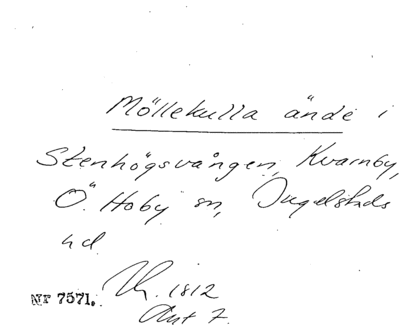 Möllekulla ände i
Stenhögsvången, Kvarnby,
Ö. Hoby sn, Ingelstads
hd.
Nr 7571. 1812
Akt 7.